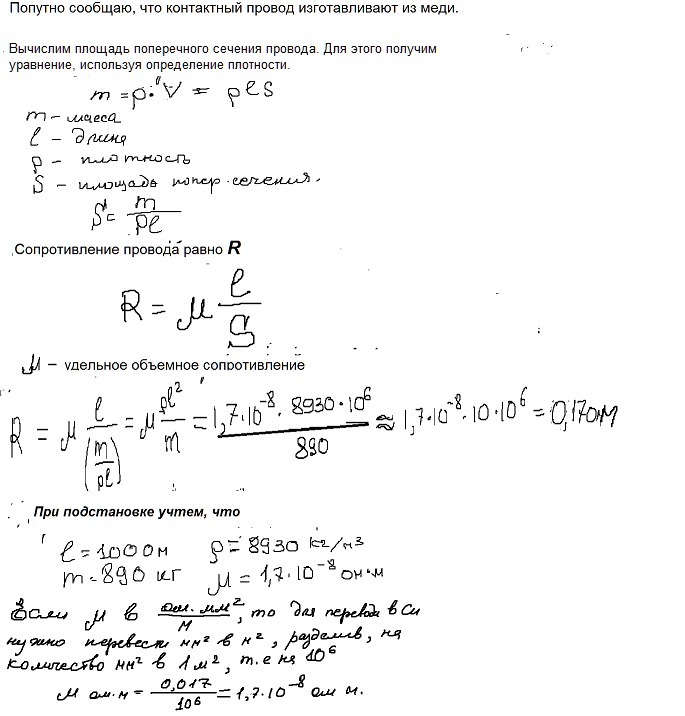 Попутно сообщаю, что контактный провод изготавливают из меди.
Вычислим площадь поперечного сечения провода. Для этого получим
уравнение, используя определение плотности.
m = ρ·V = ρℓS
m – масса
ℓ – длина
ρ – плотность
S – площадь попер. сечения.
S = m/ρℓ
Сопротивление провода равно R
R = μ ℓ/S
μ – удельное объемное сопротивление
R = μ ℓ/(m/ρℓ) = μ ρℓ²/m = 1,7·10⁻⁸·8930·10⁶/890 ≈ 1,7·10⁻⁸·10·10⁶ = 0,17 ом
При подстановке учтем, что
ℓ = 1000 м ρ = 8930 кг/м3
m = 890 кг μ = 1,7·10⁻⁸ ом·м
Если μ в ом.мм²/м, то для перевода в Си
нужно перевести мм² в м², разделив, на
количество мм² в 1 м², т.е на 10⁶
μ ом.м = 0,017/10⁶ = 1,7·10⁻⁸ ом м.